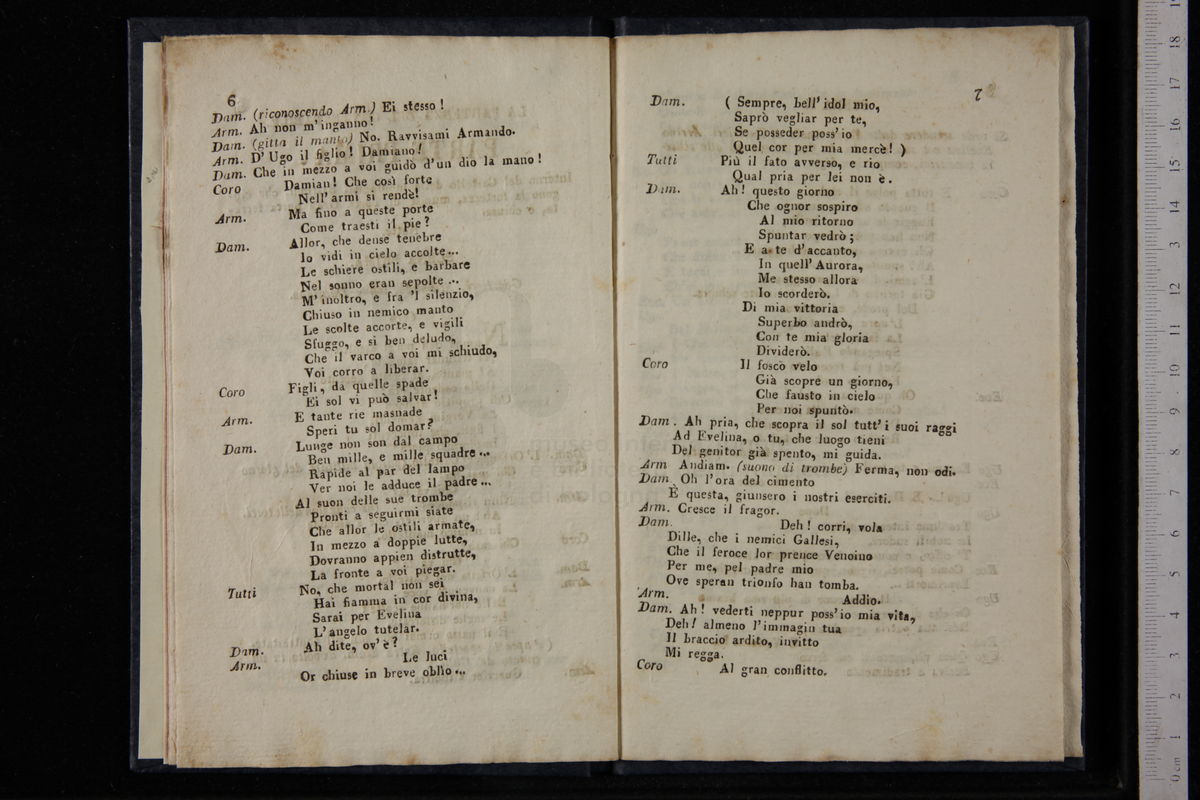 6
Dam. (riconoscendo Arm.) Ei stesso!
Arm. Ah non m'inganno!
Dam. (gitta il manto) No. Ravvisami Armando.
Arm. D'Ugo il figlio! Damiano!
Dam. Che in mezzo a voi guidò d'un dio la mano!
Coro Damian! Che così forte
Nell'armi si rendè!
Arm. Ma fino a queste porte
Come traesti il pie?
Dam. Allor, che dense tenebre
Io vidi in cielo accolte...
Le schiere ostili, e barbare
Nel sonno eran sepolte ...
M'inoltro, e fra 'l silenzio,
Chiuso in nemico manto
Le scolte accorte, e vigili
Sfuggo, e si ben deludo,
Che il varco a voi mi schiudo,
Voi corro a liberar.
Coro Figli, da quelle spade
Ei sol vi può salvar!
Arm. E tante rie masnade
Speri tu sol domar?
Dam. Lunge non son dal campo
Ben mille, e mille squadre ...
Rapide al par del lampo
Ver noi le adduce il padre ...
Al suon delle sue trombe
Pronti a seguirmi siate
Che allor le ostili armate,
In mezzo a doppie lutte,
Dovranno appien distrutte,
La fronte a voi piegar.
Tutti No, che mortal non sei
Hai fiamma in cor divina,
Sarai per Evelina
L'angelo tutelar.
Dam. Ah dite, ov'è?
Arm. Le luci
Or chiuse in breve oblìo ...
7
Dam. ( Sempre, bell'idol mio,
Saprò vegliar per te,
Se posseder poss'io
Quel cor per mia mercè! )
Tutti Più il fato avverso, e rio
Qual pria per lei non è.
Dam. Ah! questo giorno
Che ognor sospiro
Al mio ritorno
Spuntar vedrò;
E a te d'accanto,
In quell'Aurora,
Me stesso allora
Io scorderò.
Di mia vittoria
Superbo andrò,
Con te mia gloria
Dividerò.
Coro Il foscò velo
Già scopre un giorno,
Che fausto in cielo
Per noi spuntò.
Dam. Ah pria, che scopra il sol tutt'i suoi raggi
Ad Evelina, o tu, che luogo tieni
Del genitor già spento, mi guida.
Arm Andiam. (suono di trombe) Ferma, non odi.
Dam. Oh l'ora del cimento
È questa, giunsero i nostri eserciti.
Arm. Cresce il fragor.
Dam. Deh! corri, vola
Dille, che i nemici Gallesi,
Che il feroce lor prence Venoino
Per me, pel padre mio
Ove speran trionfo han tomba.
Arm. Addio.
Dam. Ah! vederti neppur poss'io mia vita,
Deh! almeno l'immagin tua
Il braccio ardito, invitto
Mi regga.
Coro Al gran conflitto.